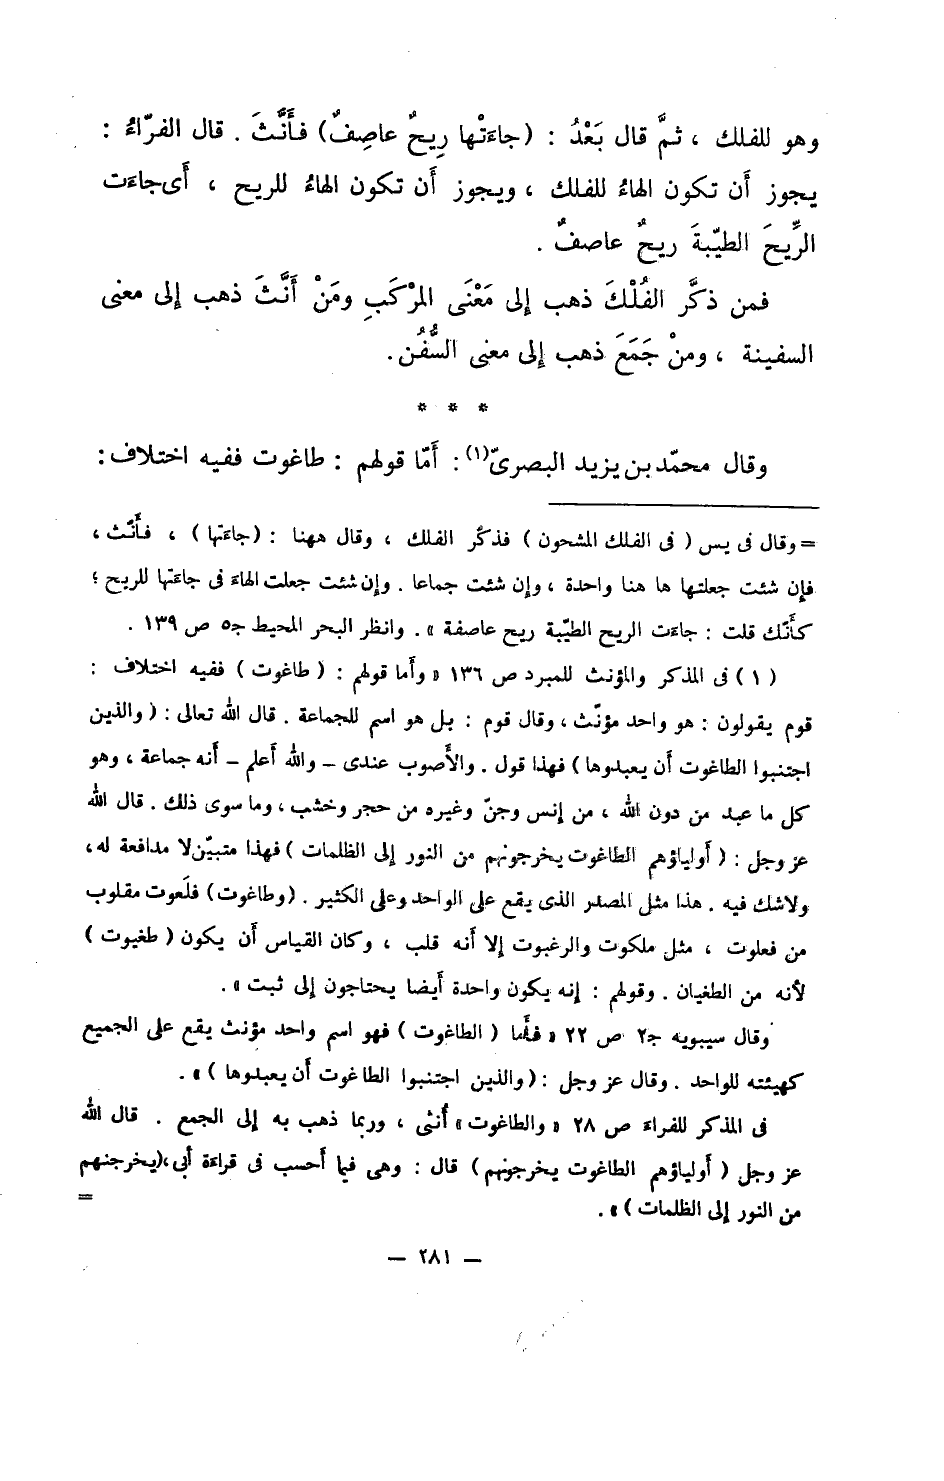 وهو للفلك ، ثمَّ قال بَعْدُ : (جاءَتْها رِيحٌ عاصِفٌ) فأَنَّثَ . قال الفرّاءُ :
يجوز أَن تكون الهاءُ للفلك ، ويجوز أَن تكون الهاءُ للريح ، أَى جاءَت
الرِّيحَ الطيّبةَ ريحٌ عاصفٌ .
فمن ذكَّر الفُلْكَ ذهب إلى مَعْنَى المرْكَبِ ومَنْ أَنَّثَ ذهب إلى معنى
السفينة ، ومنْ جَمَعَ ذهب إلى معنى السُّفُن .
* * *
وقال محمّد بن يزيد البصرىّ(١) : أَمّا قولهم : طاغوت ففيه اختلاف :
= وقال فى يس ( فى الفلك المشحون ) فذكَّر الفلك ، وقال ههنا : (جاءَتها ) ، فأَنَّث ،
فإن شئت جعلتها ها هنا واحدة ، وإن شئت جماعا . وإن شئت جعلت الهاءَ فى جاءَتها للريح ؛
كأَنّك قلت : جاءَت الريح الطيّبة ريح عاصفة » . وانظر البحر المحيط ج٥ ص ١٣٩ .
( ١ ) فى المذكر والمؤنث للمبرد ص ١٣٦ « وأما قولهم : ( طاغوت ) ففيه اختلاف :
قوم يقولون : هو واحد مؤنّث ، وقال قوم : بل هو اسم للجماعة . قال الله تعالى : ( والذين
اجتنبوا الطاغوت أن يعبدوها ) فهذا قول . والأَصوب عندى – والله أعلم – أنه جماعة ، وهو
كل ما عبد من دون الله ، من إنس وجنّ وغيره من حجر وخشب ، وما سوى ذلك . قال الله
عز وجل : ( أولياؤهم الطاغوت يخرجونهم من النور إلى الظلمات ) فهذا متبيّن لا مدافعة له ،
ولاشك فيه . هذا مثل المصدر الذى يقع على الواحد وعلى الكثير . (وطاغوت) فلَعوت مقلوب
من فعلوت ، مثل ملكوت والرغبوت إلا أنه قلب ، وكان القياس أن يكون ( طغيوت )
لأنه من الطغيان . وقولهم : إنه يكون واحدة أيضا يحتاجون إلى ثبت » .
وقال سيبويه ج٢ ص ٢٢ « فأَما ( الطاغوت ) فهو اسم واحد مؤنث يقع على الجميع
كهيئته للواحد . وقال عز وجل : ( والذين اجتنبوا الطاغوت أن يعبدوها ) » .
فى المذكر للفراء ص ٢٨ « والطاغوت » أُنثى ، وربما ذهب به إلى الجمع . قال الله
عز وجل ( أولياؤهم الطاغوت يخرجونهم ) قال : وهى فيما أحسب فى قراءة أبى ، (يخرجنهم
من النور إلى الظلمات ) » .
=
— ٢٨١ —